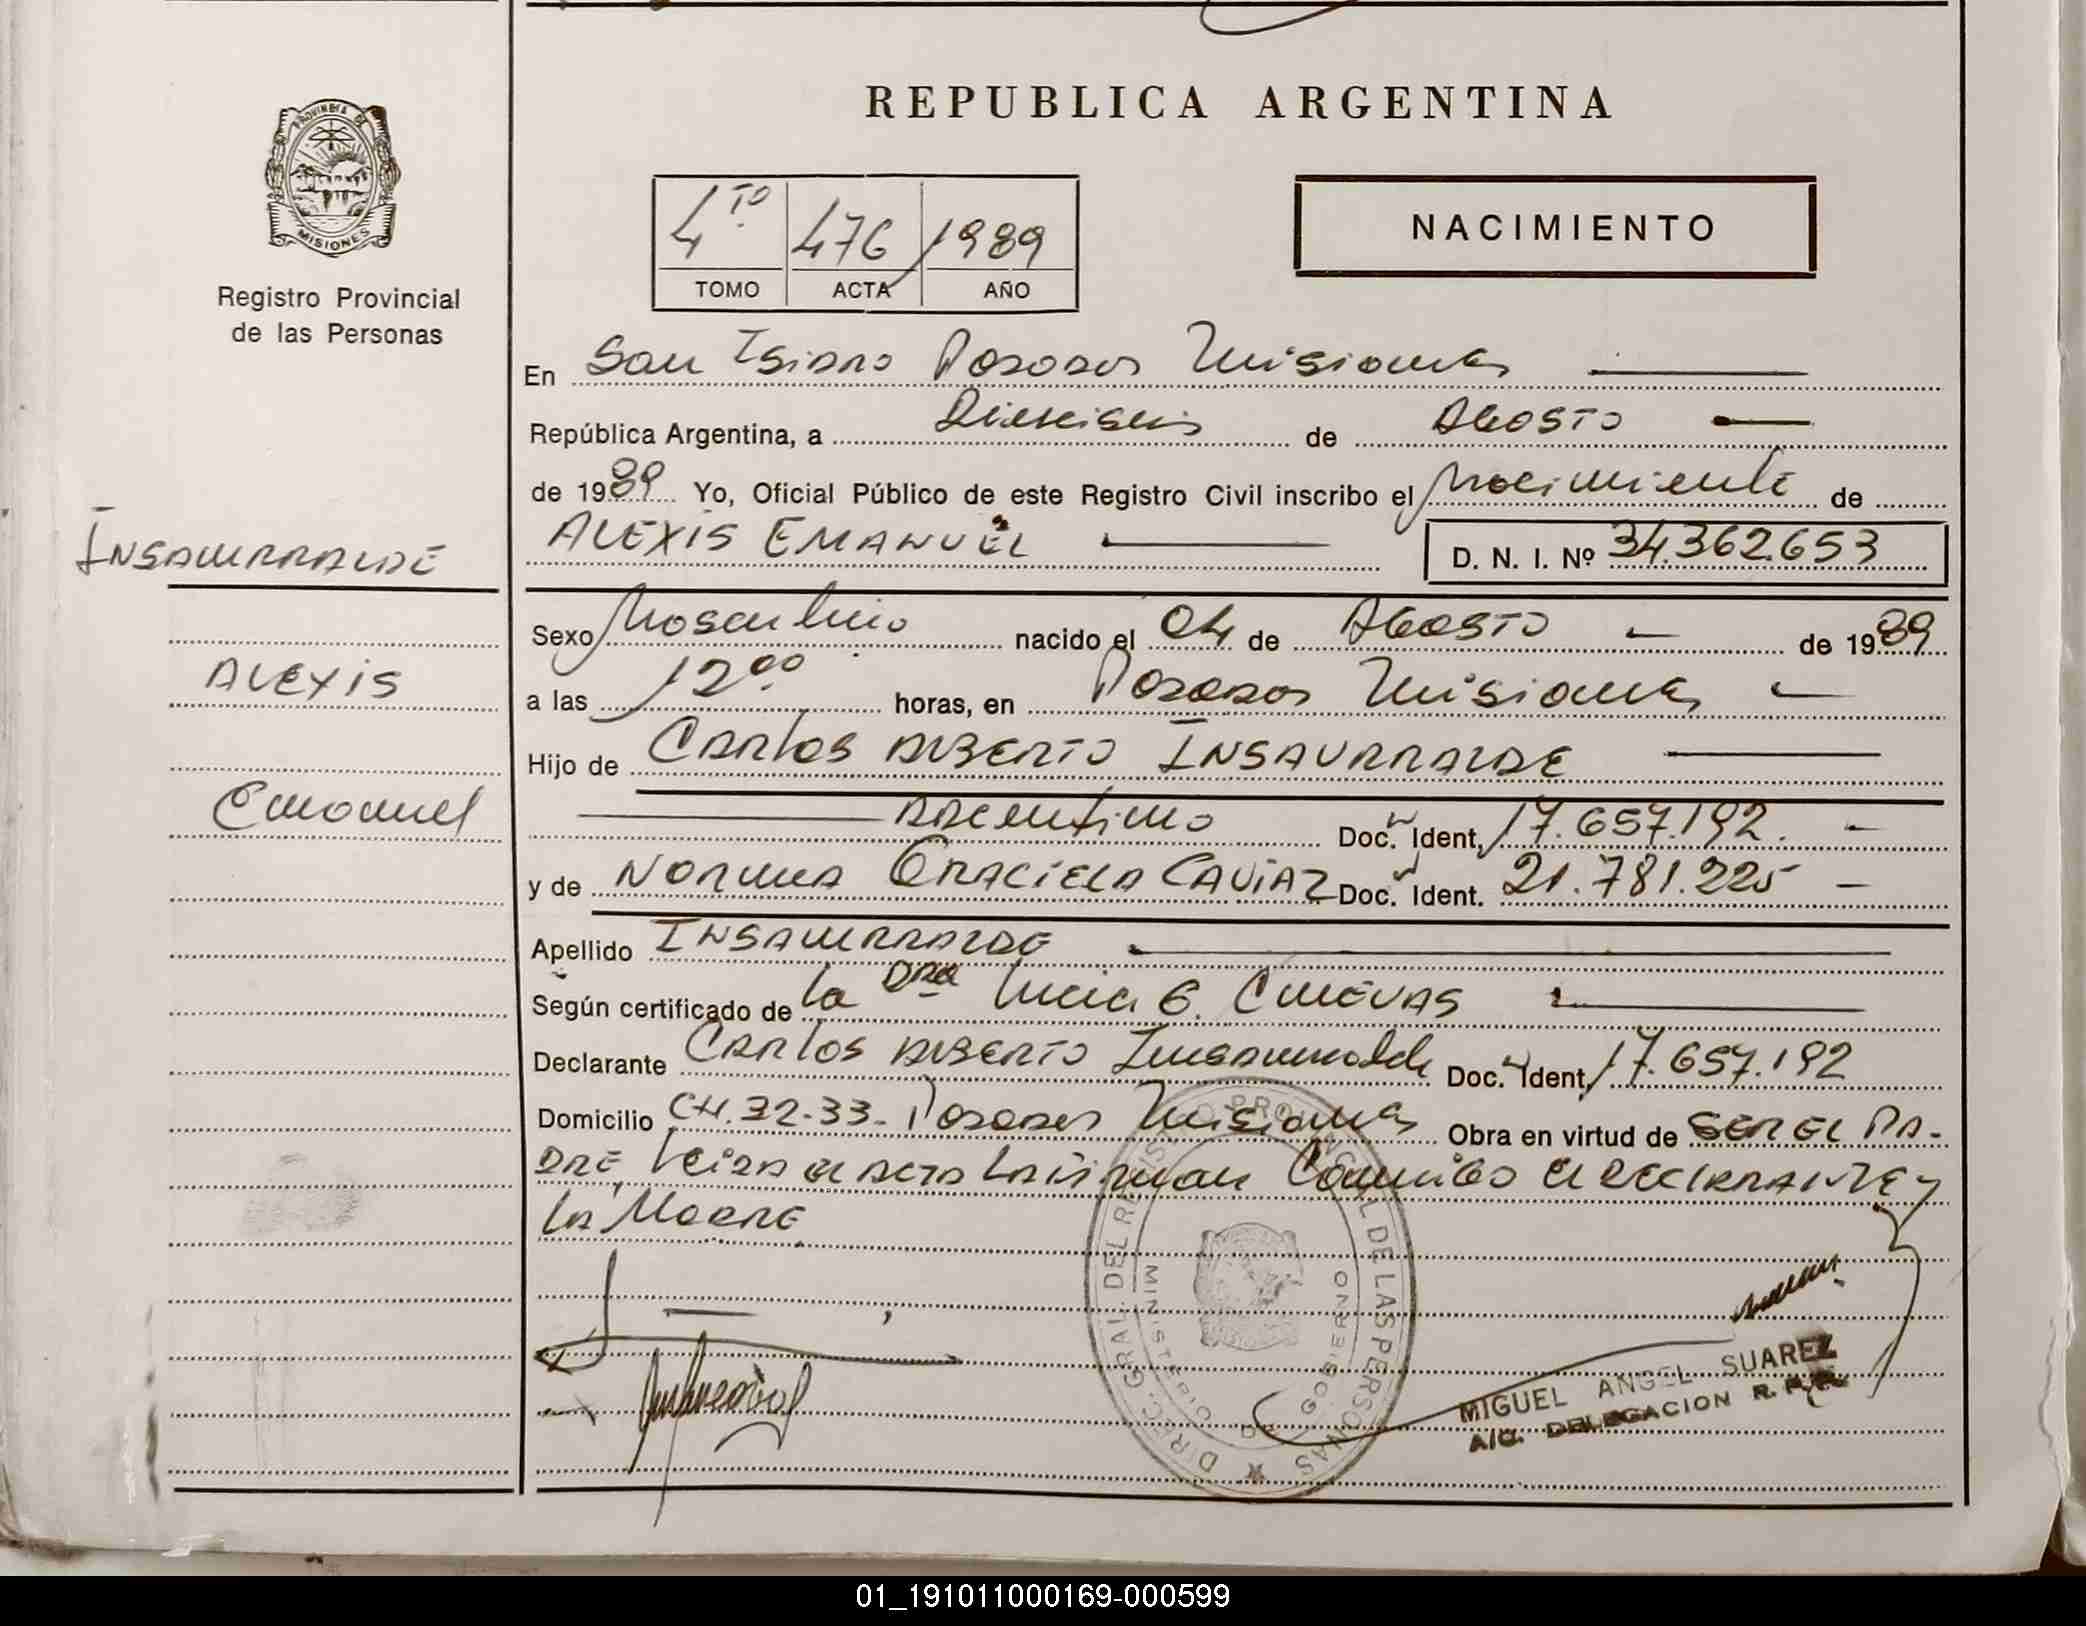 REPUBLICA ARGENTINA
PROVINCIA DE
MISIONES
Registro Provincial
de las Personas
4TO 476 1989
TOMO ACTA AÑO
NACIMIENTO
En San Isidro Posadas Misiones
República Argentina, a Dieciseis de Agosto
de 1989 Yo, Oficial Público de este Registro Civil inscribo el Nacimiento de
ALEXIS EMANUEL D. N. I. Nº 34.362.653
INSAURRALDE
ALEXIS
Emanuel
Sexo Masculino nacido el 04 de Agosto de 1989
a las 12 00 horas, en Posadas Misiones
Hijo de Carlos Alberto INSAURRALDE
Argentino Doc. Ident. 17.657.192.
y de NORMA GRACIELA CAVIAZ Doc. Ident. 21.781.225
Apellido INSAURRALDE
Según certificado de la Dra Lucia G. CUEVAS
Declarante Carlos Alberto Insaurralde Doc. Ident. 17.657.192
Domicilio CH. 32-33- Posadas Misiones Obra en virtud de SER EL PA-
DRE, Leida el acta la firman Conmigo el declarante y
la Madre
DIREC. GRAL. DEL REGISTRO PROVINCIAL DE LAS PERSONAS
MINISTERIO DE GOBIERNO
MIGUEL ANGEL SUAREZ
A/C. DELEGACION R. P. P.
01_191011000169-000599